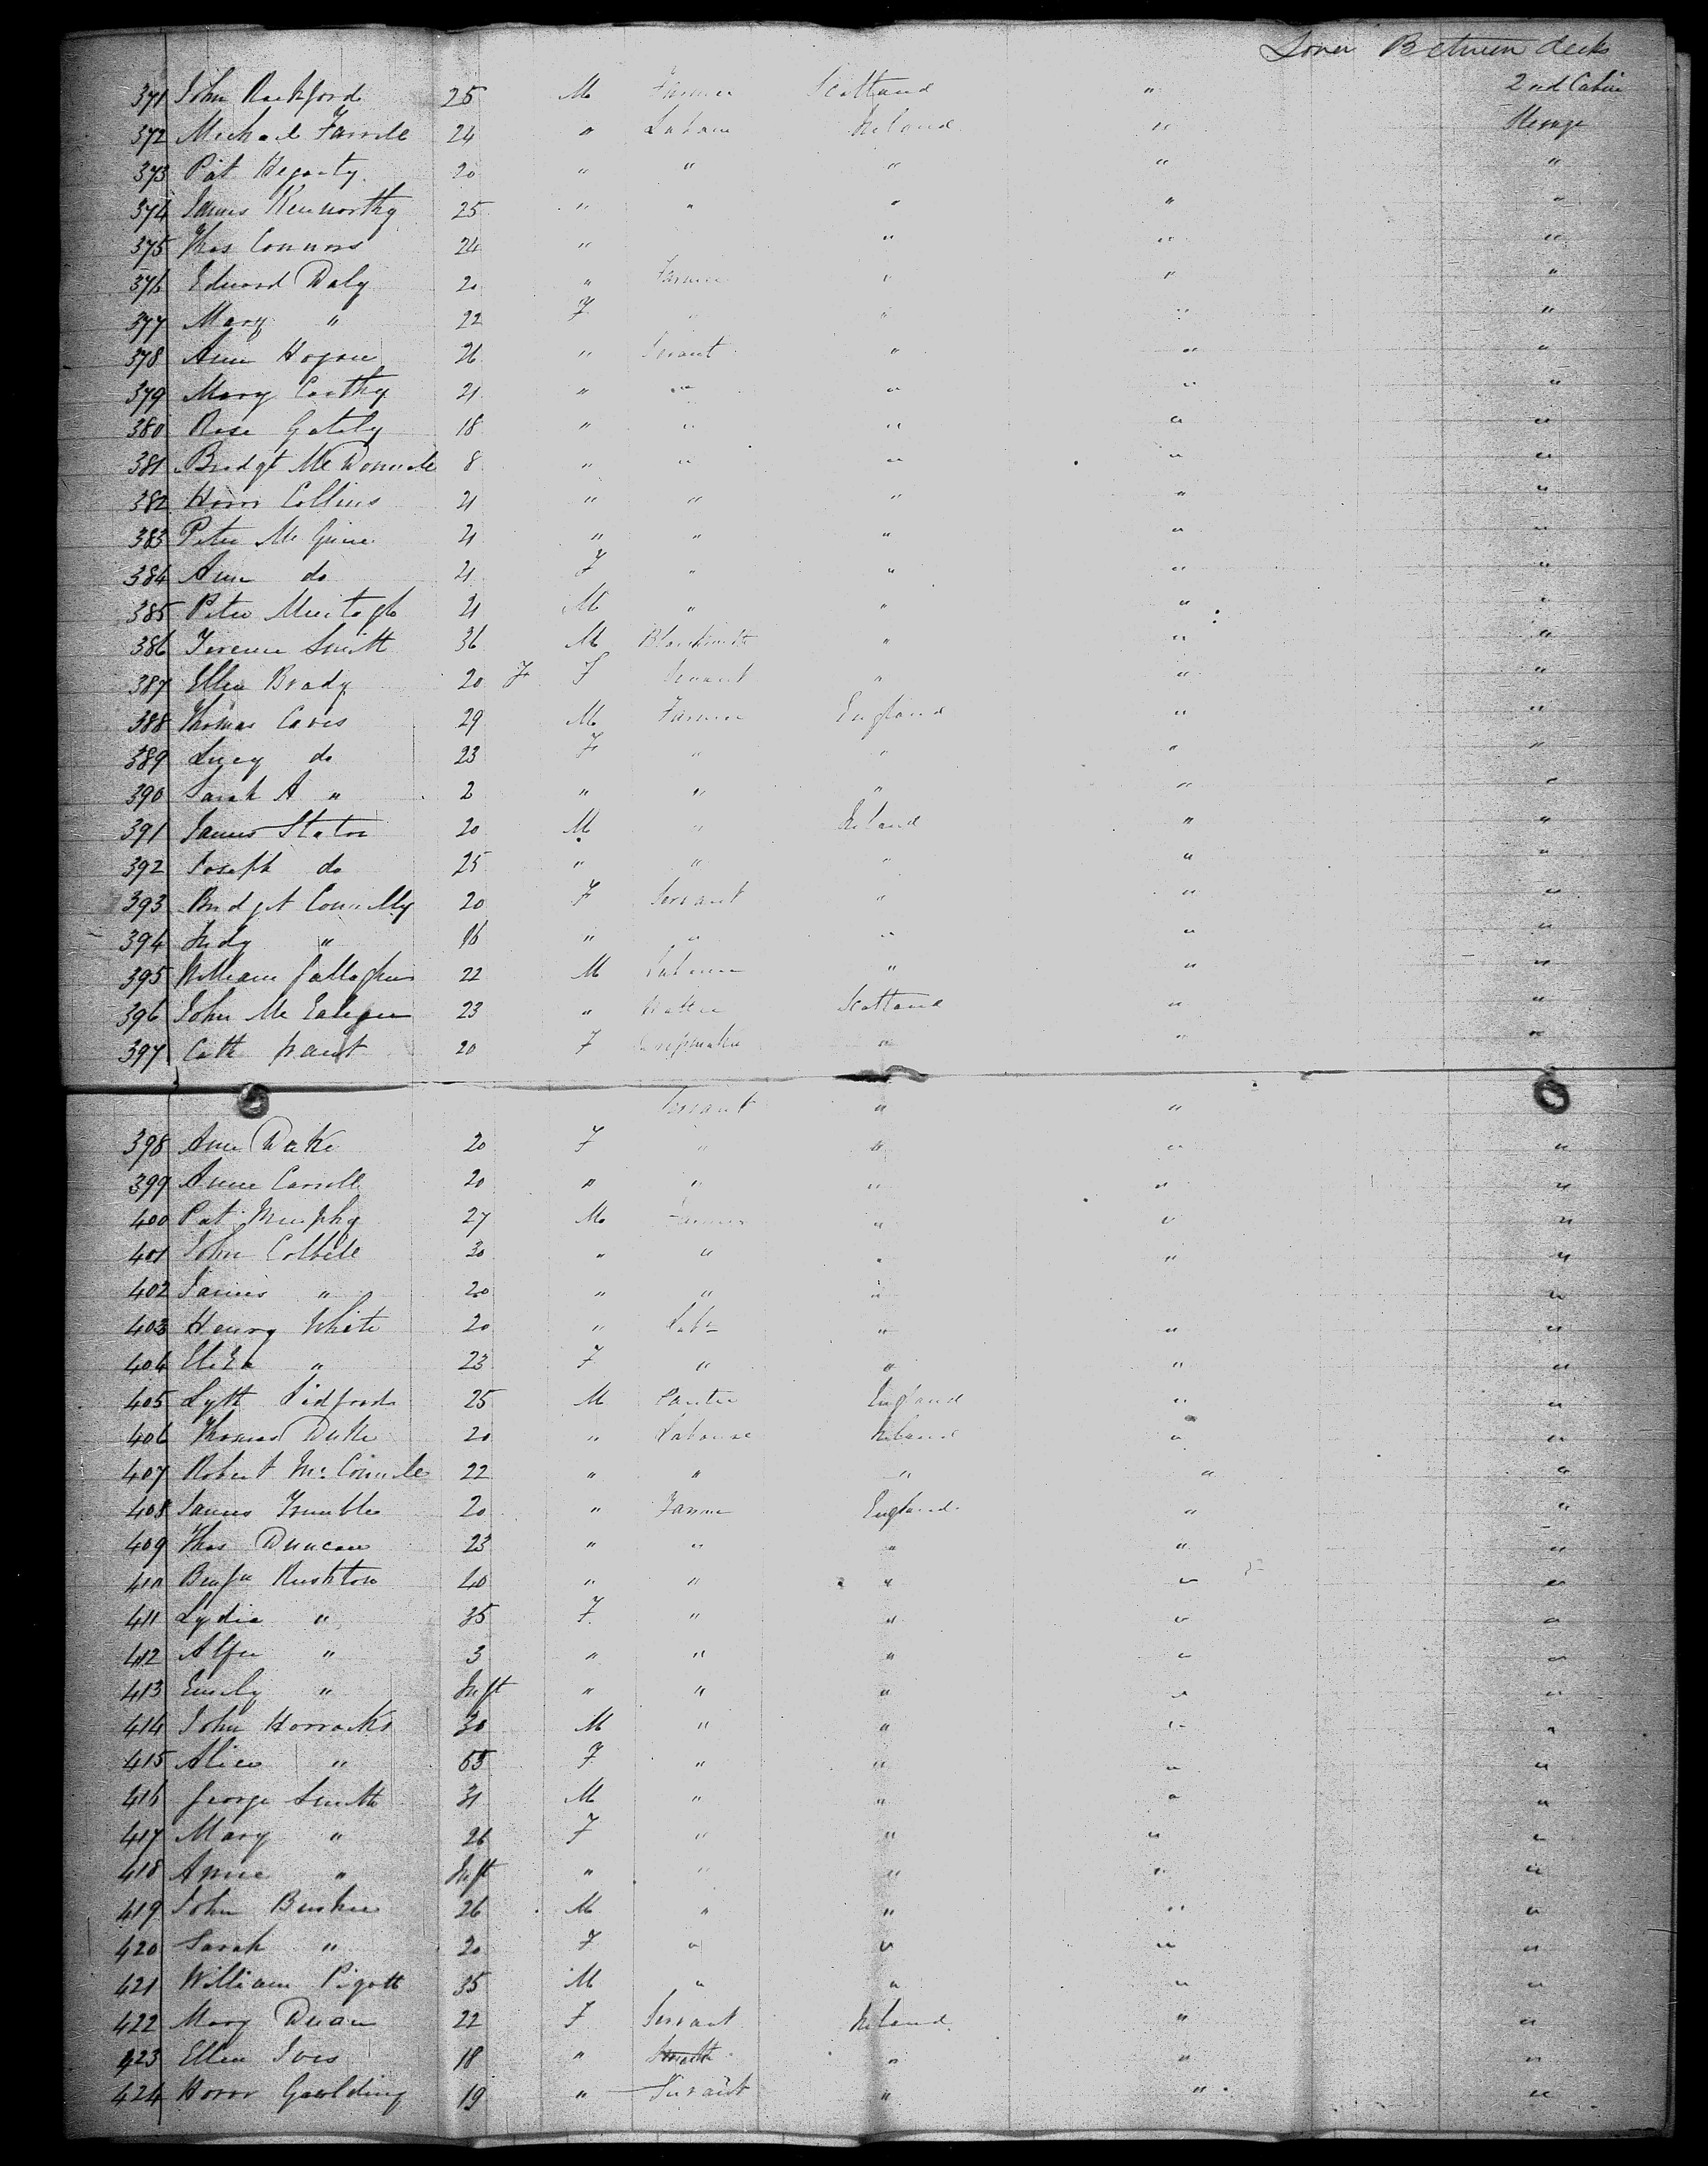 Lower Between decks
371 John Rackford 25 M Farmer Scotland " 2nd Cabin
372 Michael Farrell 24 " Labour Ireland " Sterage
373 Pat Hegarty 20 " " " " "
374 James Kenworthy 25 " " " " "
375 Thos Connors 24 " " " "
376 Edward Daly 20 " Farmer " " "
377 Mary " 22 F " " " "
378 Ann Hogan 26 " Servant " " "
379 Mary Carthy 21 " " " " "
380 Rose Gately 18 " " " " "
381 Bridgt McDonnell 8 " " " " "
382 Honr Collins 21 " " " " "
383 Peter Mc 21 " " " " "
384 Ann do 21 F " " " "
385 Peter Murtagh 21 M " " " "
386 Terence Smith 36 M Blacksmith " " "
387 Ellen Brady 20 F F Servant " " "
388 Thomas 29 M Farmer England " "
389 Lucy do 23 F " " " "
390 Sarah A " 2 " " " " "
391 James Staton 20 M " Ireland " "
392 Joseph do 25 " " " " "
393 Bridget Connelly 20 F Servant " " "
394 Judy " 16 " " " " "
395 William Gallagher 22 M Labourer " " "
396 John Mc 23 " Hatter Scotland " "
397 Cath Grant 20 F " " "
Servant " "
398 Ann Duke 20 F " " " "
399 Anne Carroll 20 " " " " "
400 Pat Murphy 27 M Farmer " " "
401 John 30 " " " " "
402 James " 20 " " " "
403 Henry White 20 " Labr " " "
404 Eliza " 23 F " " " "
405 25 M England " "
406 Thomas Duke 20 " Labourer Ireland " "
407 Robert McConnell 22 " " " " "
408 James Trumble 20 " Farmer England " "
409 Thos Duncan 23 " " " " "
410 Benjn Rushton 40 " " " " "
411 Lydia " 35 F " " " "
412 " 3 " " " " "
413 Emily " Inft " " " " "
414 John Horrocks 30 M " " " "
415 Alice " 65 F " " " "
416 George Smith 31 M " " " "
417 Mary " 26 F " " " "
418 Annie " Inft " " " " "
419 John 26 M " " " "
420 Sarah " 20 F " " " "
421 William Pigott 35 M " " " "
422 Mary 22 F Servant Ireland " "
423 Ellen Ives 18 " " " "
424 Honr Goulding 19 " Servant " " "